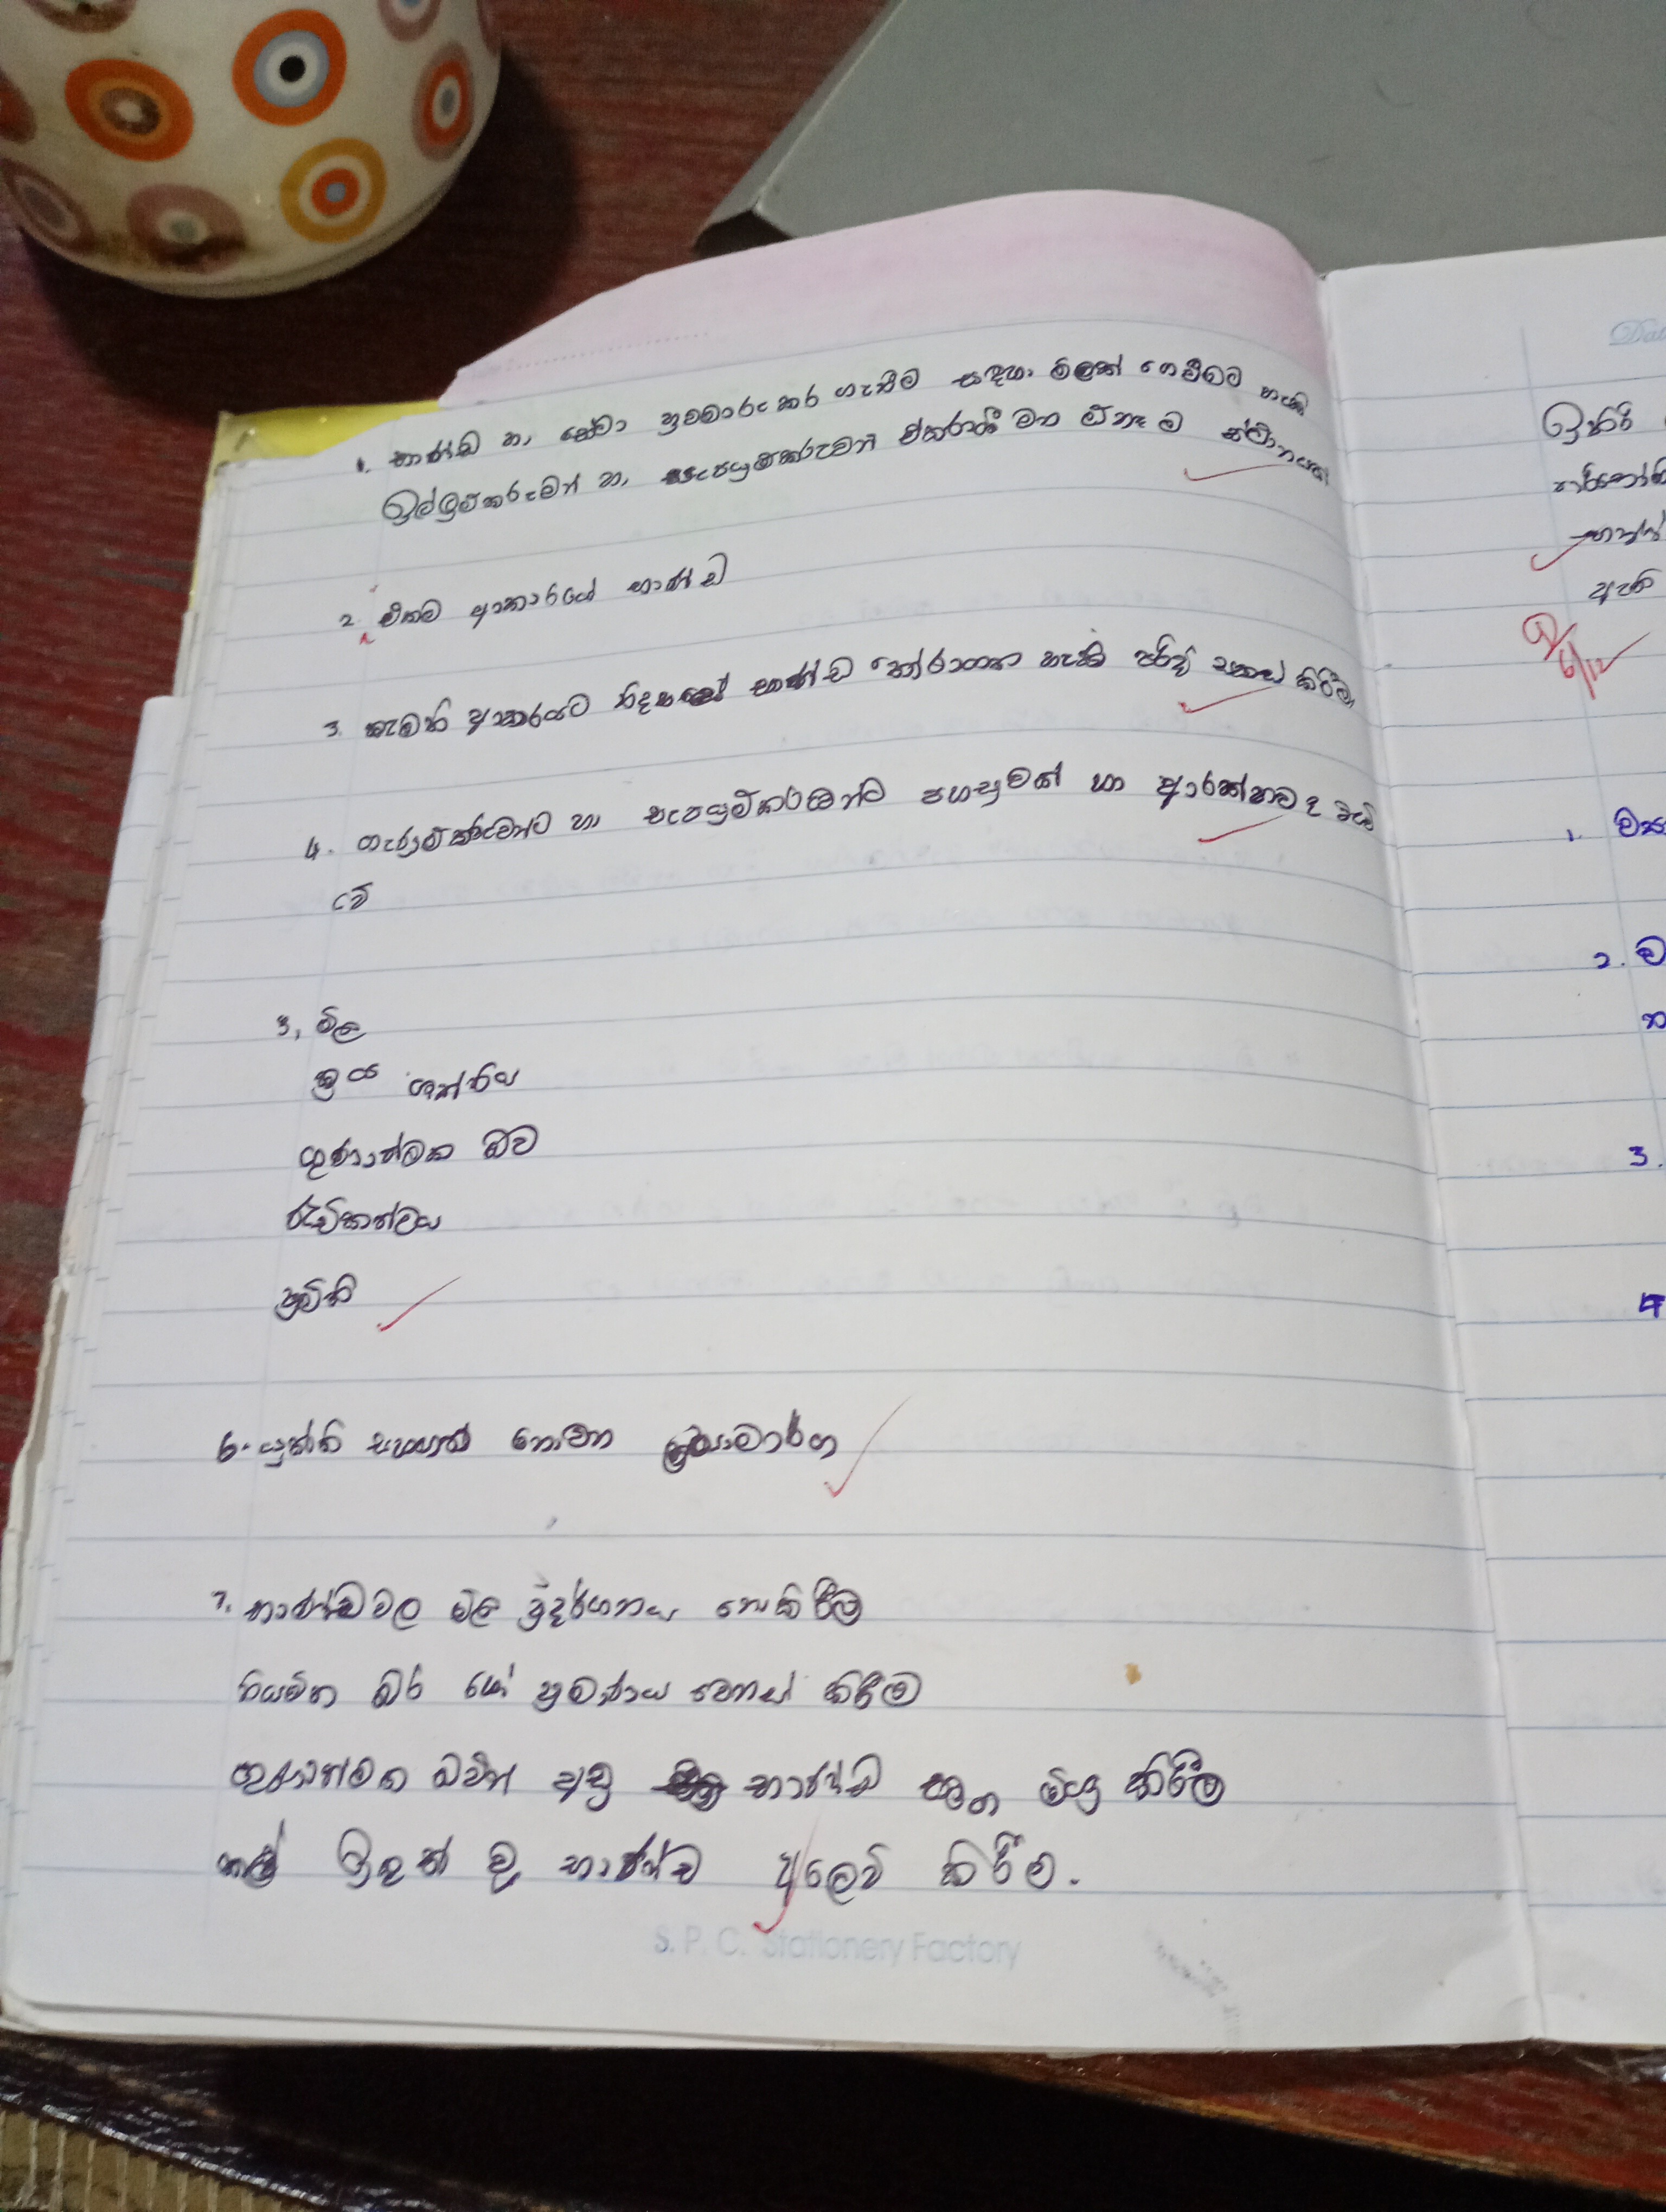 1. භාණ්ඩ හා සේවා හුවමාරු කර ගැනීම සඳහා මිලක් ගෙවීමට හැකි
ඉල්ලුම්කරුවන් හා සැපයුම්කරුවන් ඒකරාශී වන ඕනෑ ම ස්ථානයක්
2. එකම ආකාරයේ භාණ්ඩ
3. කැමති ආකාරයට නිදහසේ භාණ්ඩ තෝරාගත හැකි පරිදි සකස් කිරීම
4. ගැනුම්කරුවන්ට හා සැපයුම්කරුවන්ට පහසුවක් හා ආරක්ෂාව ද
වේ
3, මිල
ක්‍රය ශක්තිය
ගුණාත්මක බව
රුචිකත්වය
ප්‍රමිති
6. යුක්ති සහගත නොවන ක්‍රියාමාර්ග
7. භාණ්ඩවල මිල ප්‍රදර්ශනය නොකිරීම
නියමිත බර හෝ ප්‍රමාණය වෙනස් කිරීම
ගුණාත්මක බවින් අඩු භාණ්ඩ මිශ්‍ර කිරීම
කල් ඉකුත් වූ භාණ්ඩ අලෙවි කිරීම.
S. P. C. Stationery Factory
6/12
1.
2.
3.
4